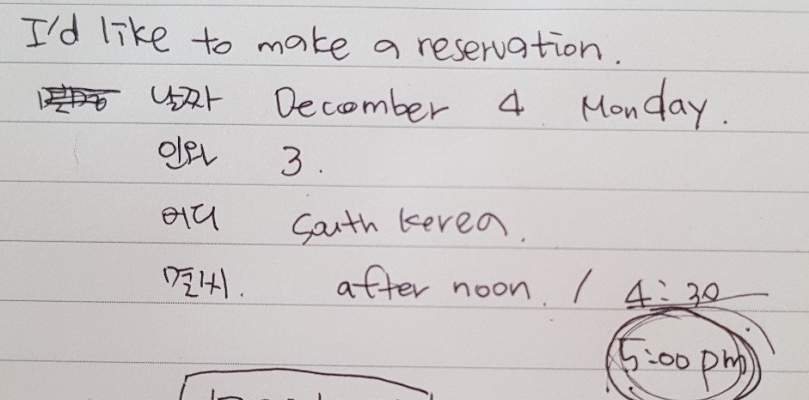 I'd like to make a reservation.
날짜 December 4 Monday.
인원 3.
어디 South Kerea.
몇시. after noon. / 4:30
5:00 pm